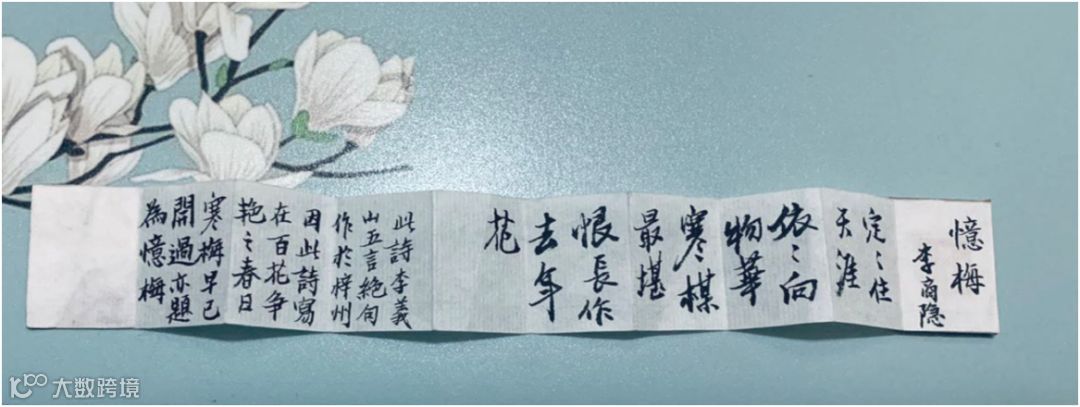 憶梅
李商隐
定〻住
天涯
依〻向
物華
寒楳
最堪
恨長作
去年
花
此詩李義
山五言絶句
作於梓州
因此詩寫
在百花争
艳之春日
寒梅早已
開過亦題
為憶梅
大数跨境